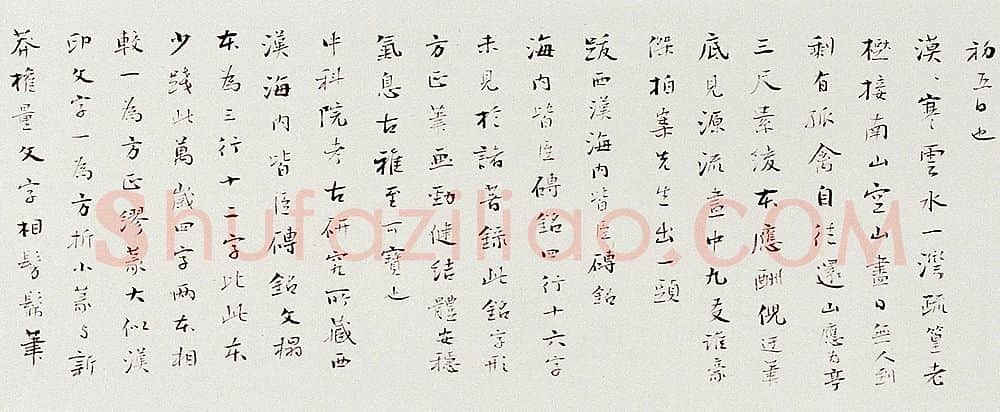 初五日也
漠、寒雲水一灣疏篁老
樾接南山空山盡日無人到
剩有孤禽自往還山應為
三尺素綾本應酬倪迂筆
底見源流畫中九友誰豪
傑拍案先生出一頭
跋西漢海內皆臣磚銘
海內皆臣磚銘四行十六字
未見於諸著錄此銘字形
方正筆畫勁健結體安穩
氣息古雅至可寶也
中科院考古研究所藏西
漢海內皆臣磚銘文搨
本為三行十二字比此本
少踐此萬歲四字兩本相
較一為方正繆篆大似漢
印文字一為方折小篆与新
莽權量文字相髣髴筆
Shufaziliao.COM